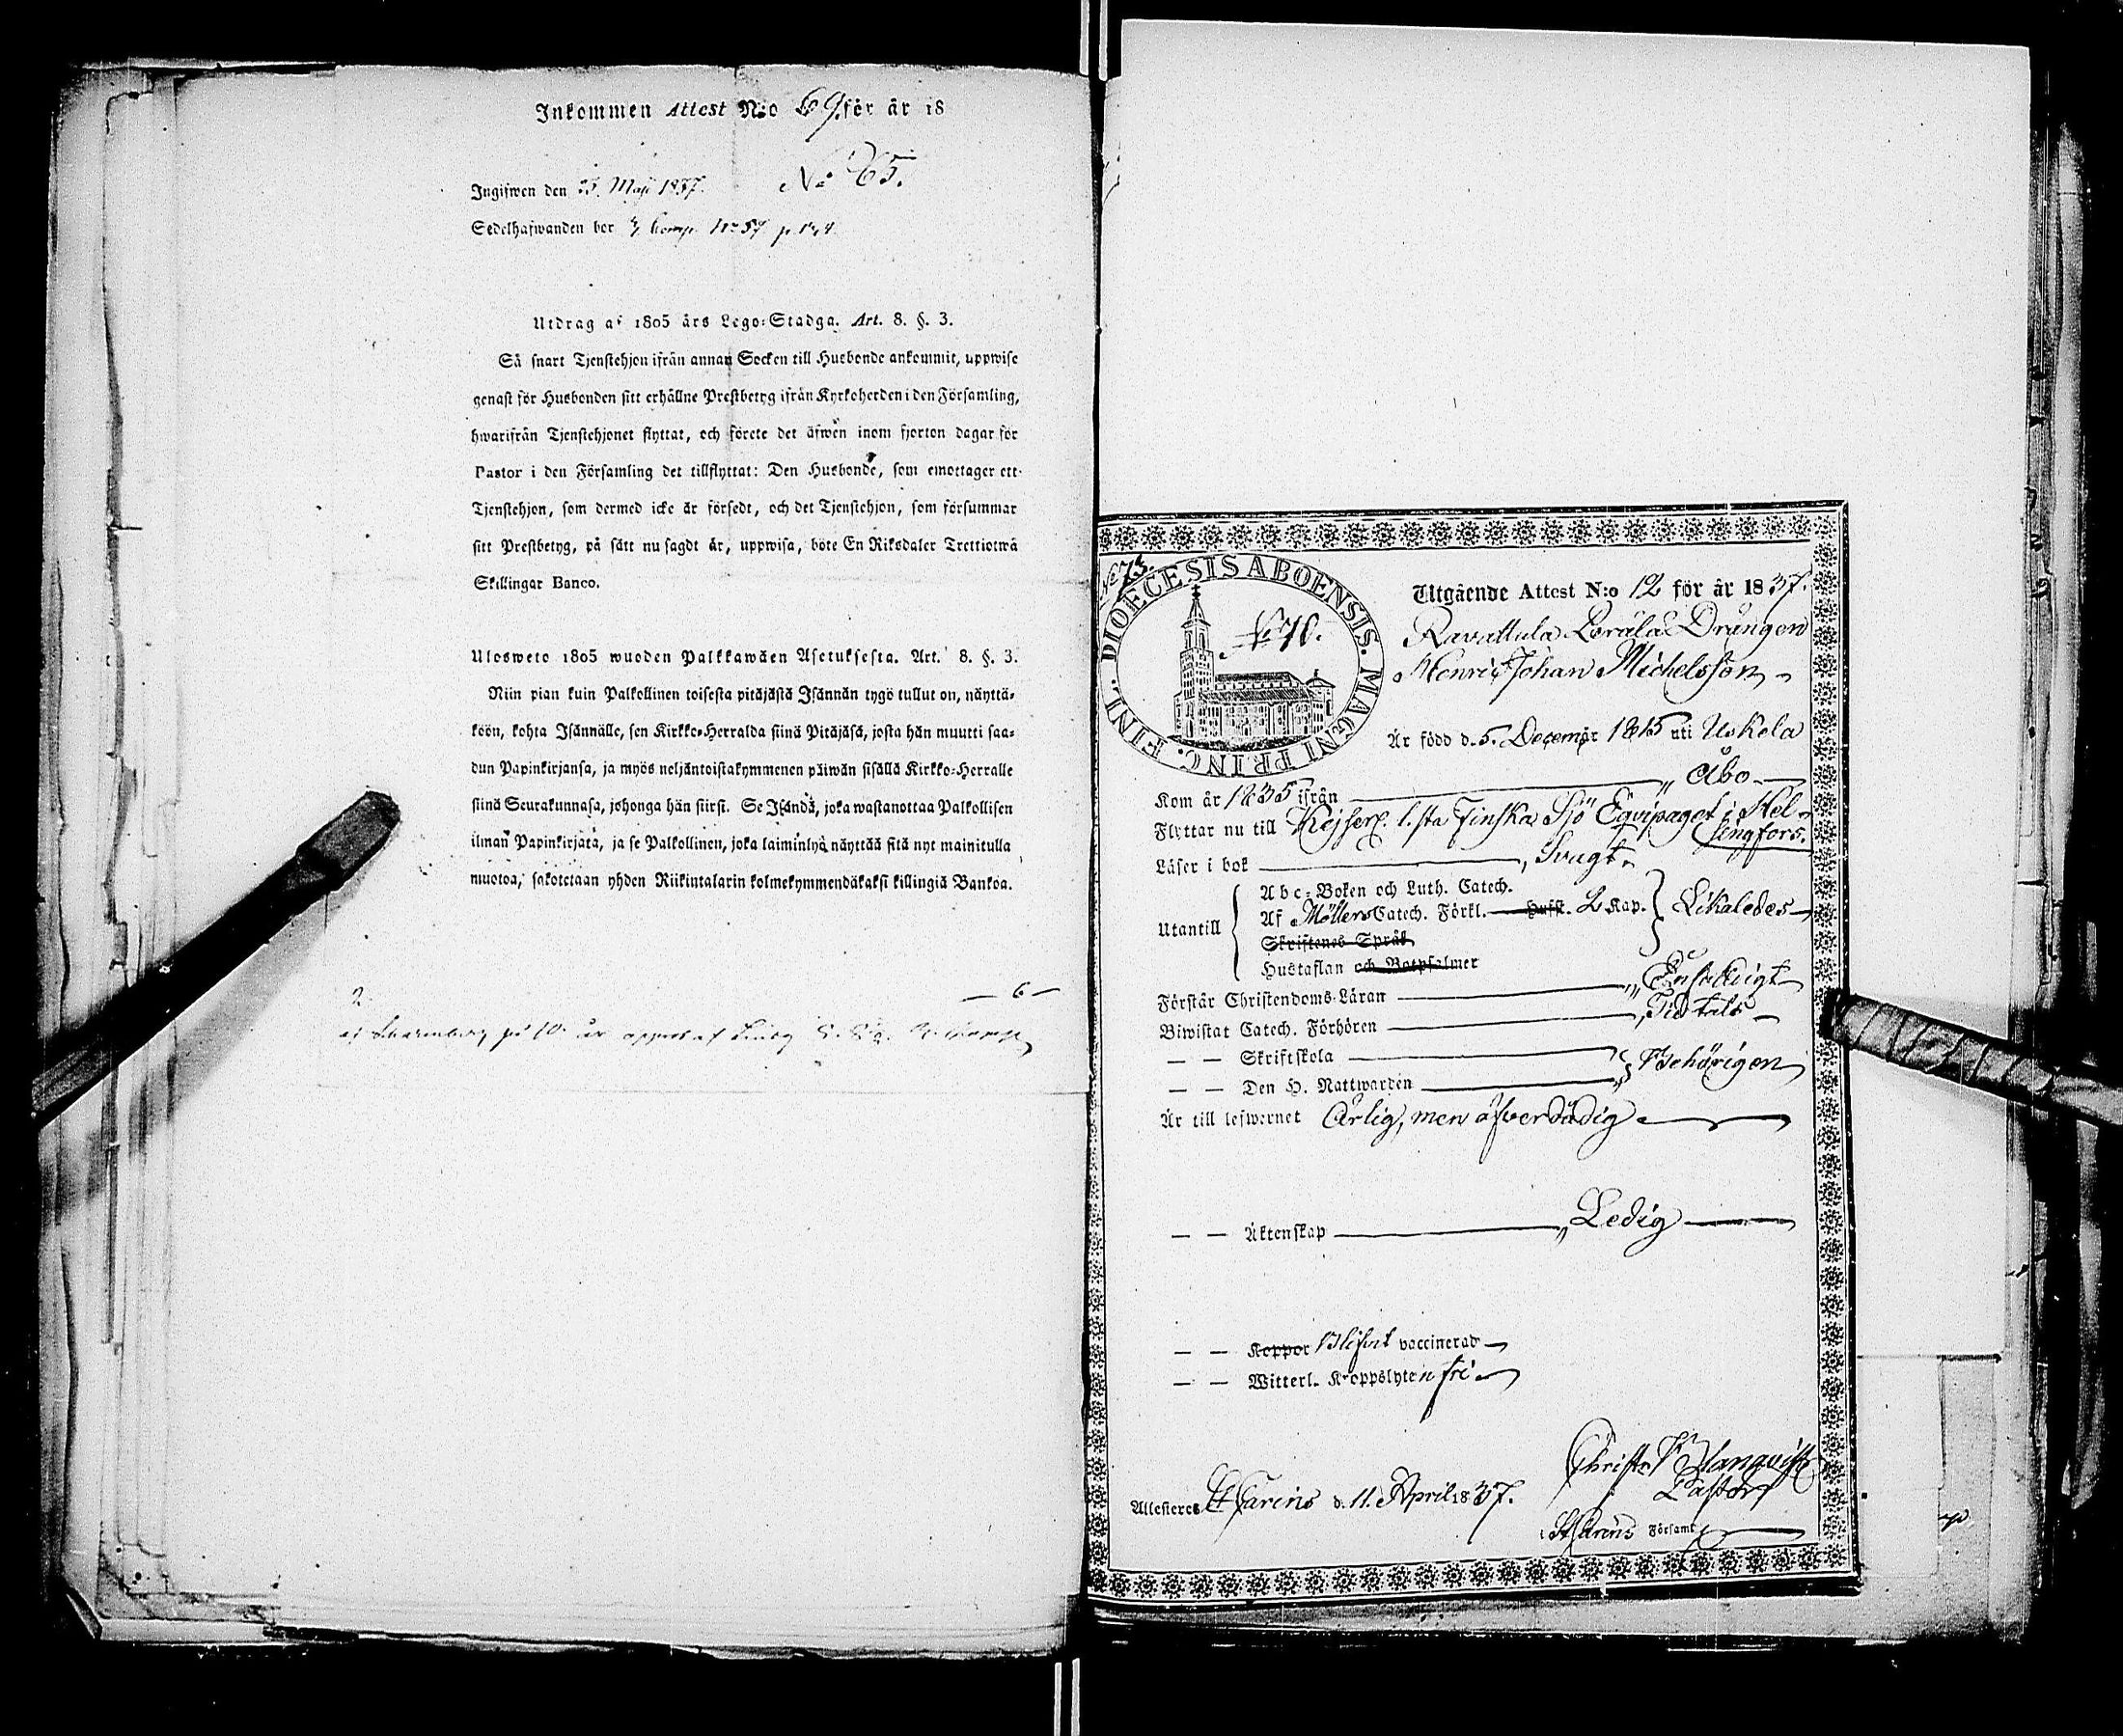 Inkommen Attest N:o 69. för år 18
Ingifwen den 25 Maji 1837. No 65.
Sedelhafwanden bor 4 Comp. No 57 p.
Utdrag af 1805 års Lego-Stadga. Art. 8. §. 3.
Så snart Tjenstehjon ifrån annan Socken till Husbonde ankommit, uppwise
genast för Husbonden sitt erhållne Prestbetyg ifrån Kyrkoherden i den Församling,
hwarifrån Tjenstehjonet flyttat, och förete det äfwen inom fjorton dagar för
Pastor i den Församling det tillflyttat: Den Husbonde, som emottager ett
Tjenstehjon, som dermed icke är försedt, och det Tjenstehjon, som försummar
sitt Prestbetyg, på sätt nu sagdt är, uppwisa, böte En Riksdaler Trettiotwå
Skillingar Banco.
Ulosweto 1805 wuoden Palkkawäen Asetuksesta. Art. 8. §. 3.
Niin pian kuin Palkollinen toisesta pitäjästä Isännän tygö tullut on, näyttä-
köön, kohta Isännälle, sen Kirkko-Herralda siinä Pitäjäsä, josta hän muutti saa-
dun Papinkirjansa, ja myös neljäntoistakymmenen päiwän sisällä Kirkko-Herralle
siinä Seurakunnasa, johonga hän siirsi. Se Isändä, joka wastanottaa Palkollisen
ilman Papinkirjatä, ja se Palkollinen, joka laiminlyö näyttää sitä nyt mainitulla
muotoa, sakotetaan yhden Riikintalarin kolmekymmendäkaksi killingiä Bankoa.
2 — 6 —
på 10 år
No 73.
DIOECESIS ABOENSIS. MAGNI PRINC. FINL.
No 70.
Utgående Attest N:o 12 för år 1837.
Ravattula Loräla Drängen
Henric Johan Michelsson
Är född d. 5. Decemər 1815 uti Uskela
Kom år 1835 ifrån " Åbo —
Flyttar nu till Kejserl. 1.sta Finska Sjö Eqvipaget i Hel-
singfors.
Läser i bok —, Svagt
Utantill
Abc-Boken och Luth. Catech.
Af Möllers Catech. Förkl. — Hufst. 2 Kap. } Likaledes
Skriftenes Språk
Hustaflan och Botpsalmer
Förstår Christendoms-Läran — " Enfaldigt
Biwistat Catech. Förhören — " Tidtals —
— — Skriftskola — } Behörigen
— — Den H. Nattwarden —
Är till lefwernet Ärlig, men öfverdådig
— — Äktenskap — " Ledig —
— — Koppor Blifvit vaccinerad —
— — Witterl. Kroppslyten fri
Attesteras St Carins d. 11. April 1837.
Pastor
i St Carins Församl.